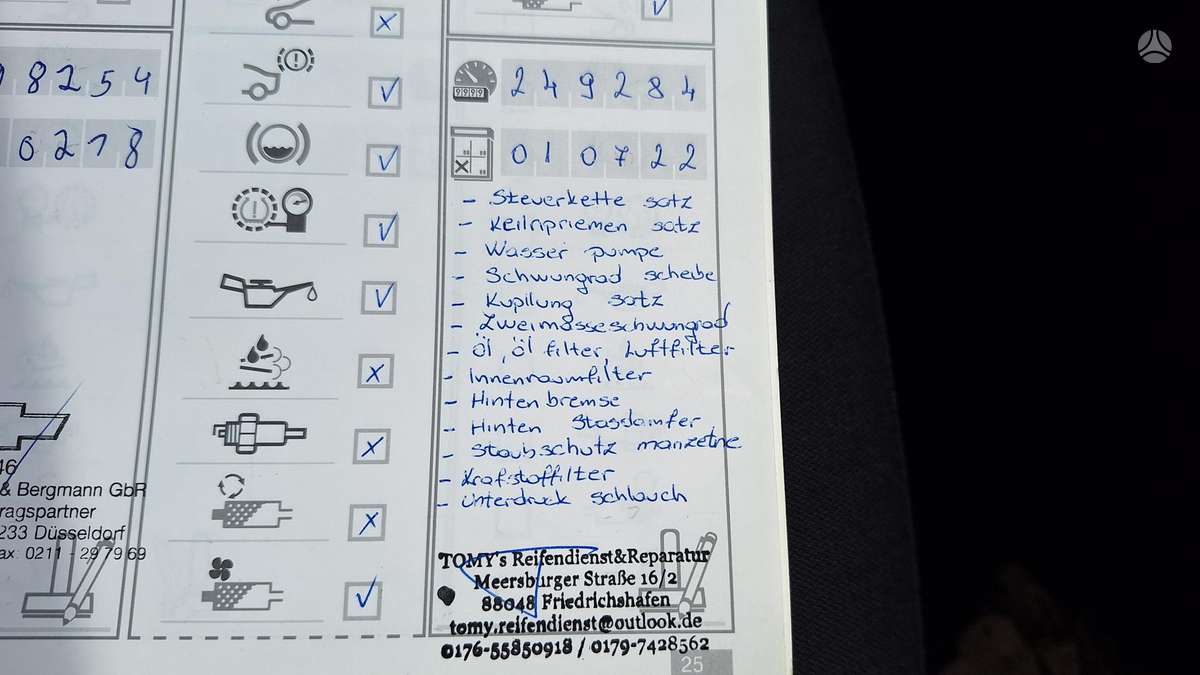 8254
0218
46
& Bergmann GbR
ragspartner
233 Düsseldorf
ax: 0211 - 29 79 69
9999
249284
010722
- Steuerkette satz
- Keilripriemen satz
- Wasser pumpe
- Schwungrad scheibe
- Kuplung satz
- Zweimasseschwungrad
- Öl, Öl filter, Luftfilter
- Innenraumfilter
- Hinten bremse
- Hinten Stosdamfer
- Staubschutz manzetne
- Krafstoffilter
- Unterdruck schlauch
TOMY's Reifendienst&Reparatur
Meersburger Straße 16/2
88048 Friedrichshafen
tomy.reifendienst@outlook.de
0176-55850918 / 0179-7428562
25